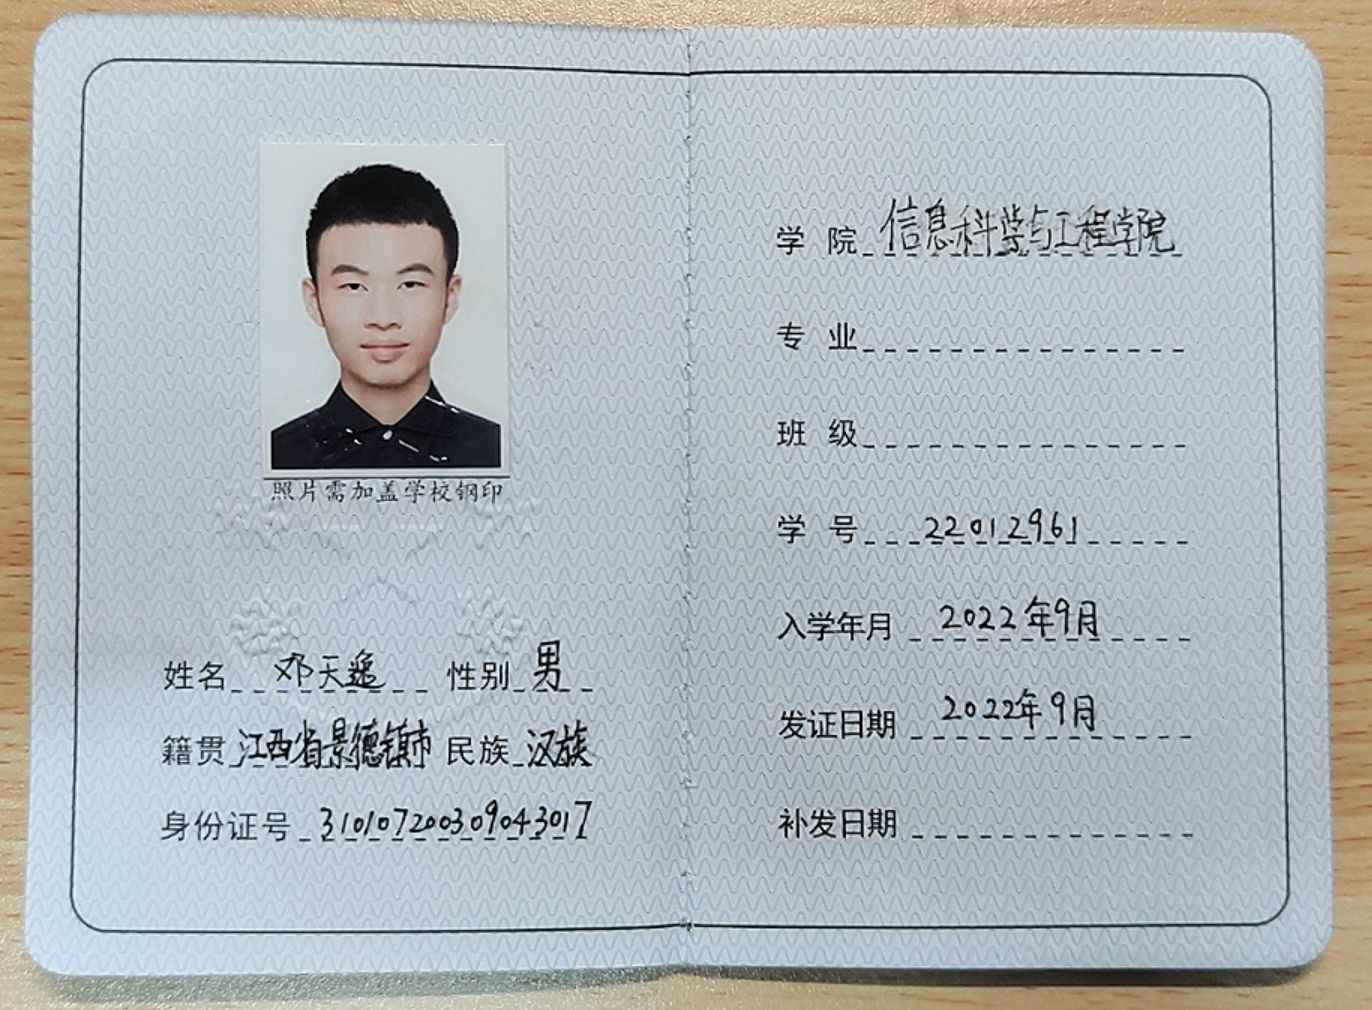 照片需加盖学校钢印
姓名 邓天遥 性别 男
籍贯 江西省景德镇市 民族 汉族
身份证号 310107200309043017
学院 信息科学与工程学院
专业
班级
学号 22012961
入学年月 2022年9月
发证日期 2022年9月
补发日期